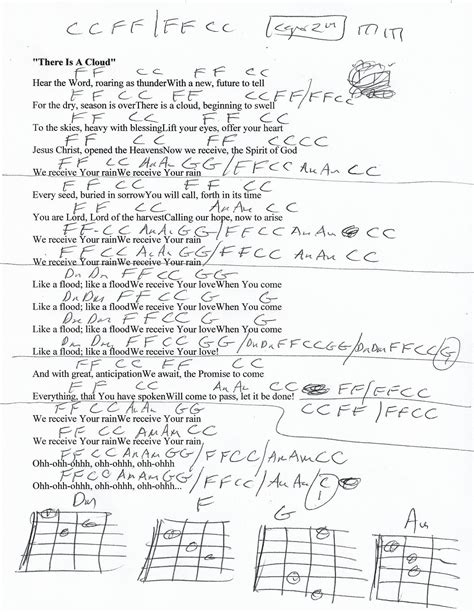 C C F F / F F C C
"There Is A Cloud"
F F C C F F C C
Hear the Word, roaring as thunderWith a new, future to tell
F F C C F F C C F F / F F C C
For the dry, season is overThere is a cloud, beginning to swell
F F C C F F C C
To the skies, heavy with blessingLift your eyes, offer your heart
F F C C F F C C C C
Jesus Christ, opened the HeavensNow we receive, the Spirit of God
F F C C Am Am G G / F F C C Am Am C C
We receive Your rainWe receive Your rain
F F C C
Every seed, buried in sorrowYou will call, forth in its time
F F C C Am Am C C
You are Lord, Lord of the harvestCalling our hope, now to arise
F F - C C Am Am G G / F F C C Am Am C C
We receive Your rainWe receive Your rain
F F C C Am Am G G / F F C C Am Am C C
We receive Your rainWe receive Your rain
Dm Dm F F C C G G
Like a flood; like a floodWe receive Your loveWhen You come
Dm Dm F F C C G G
Like a flood; like a floodWe receive Your loveWhen You come
Dm Dm F F C C G G
Like a flood; like a floodWe receive Your loveWhen You come
Dm Dm F F C C G G / Dm Dm F F C C G G / Dm Dm F F C C G
Like a flood; like a floodWe receive Your love!
F F C C F F C C
And with great, anticipationWe await, the Promise to come
F F C C Am Am C C F F / F F C C
Everything, that You have spokenWill come to pass, let it be done!
C C F F / F F C C
F F C C Am Am G G
We receive Your rainWe receive Your rain
F F C C Am Am C C
We receive Your rainWe receive Your rain
F F C C Am Am G G / F F C C / Am Am C C
Ohh-ohh-ohhh, ohh-ohhh, ohh-ohhh
F F C C Am Am G G / F F C C / Am Am C 1
Ohh-ohh-ohhh, ohh-ohhh, ohh-ohhh...
Dm F G Am